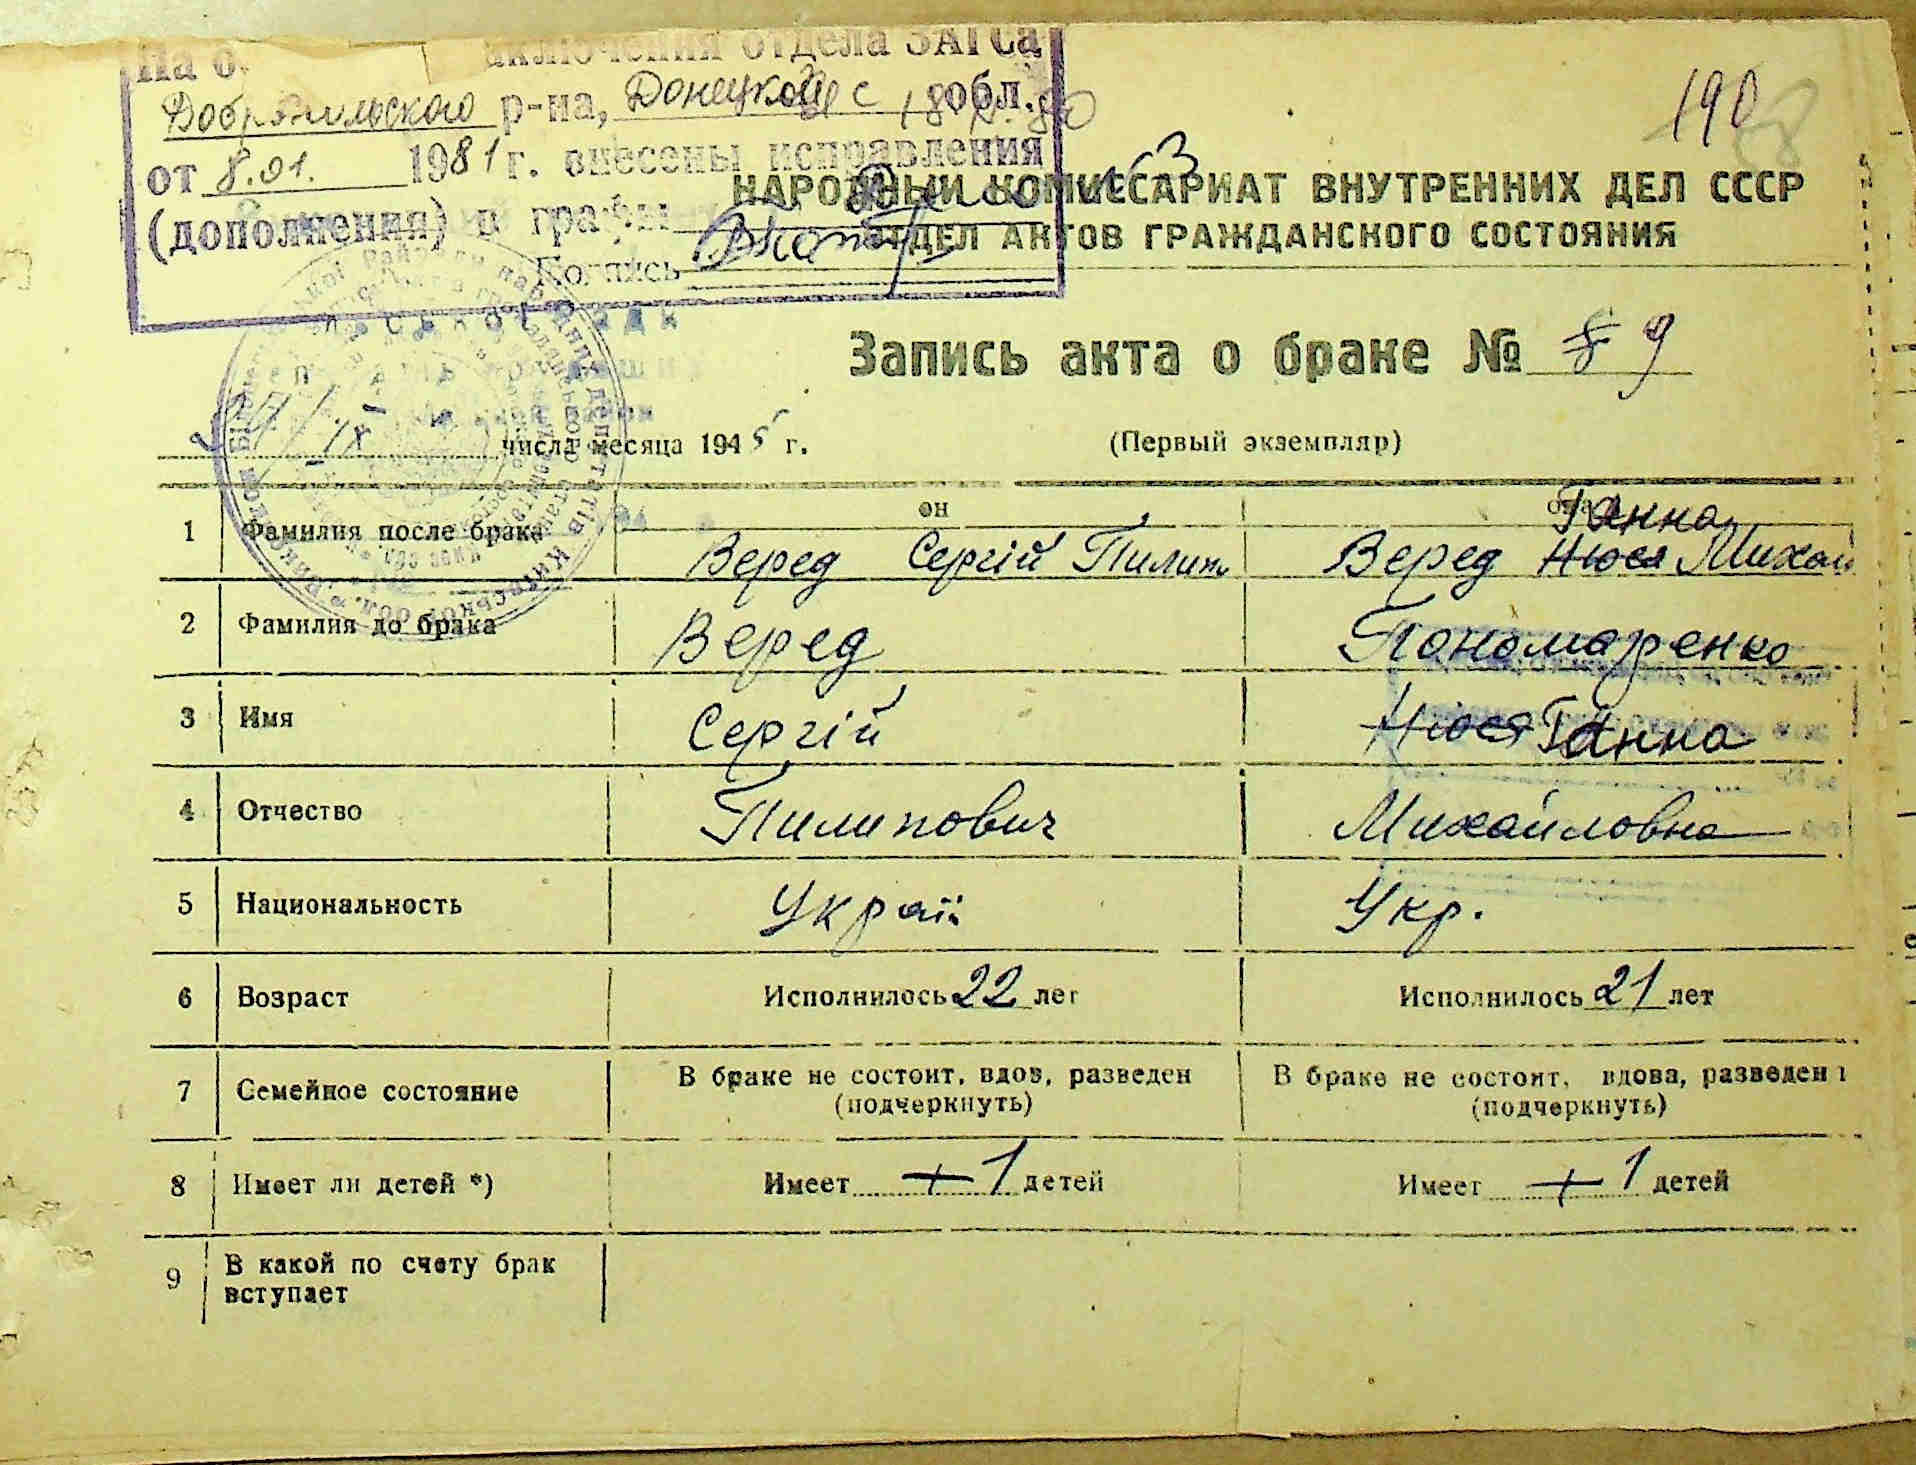 На о ключения отдела ЗАГСа
р-на, Донецкой обл.
от 8.01. 1981 г. внесены исправления
(дополнения) в графы
Подпись
190
НАРОДНЫЙ КОМИССАРИАТ ВНУТРЕННИХ ДЕЛ СССР
ОТДЕЛ АКТОВ ГРАЖДАНСКОГО СОСТОЯНИЯ
Запись акта о браке № 8 9
IX числа месяца 1945 г. (Первый экземпляр)
он она
Ганна
1 Фамилия после брака Веред Сергій Пилип Веред Нюся Михай
2 Фамилия до брака Веред Пономаренко
3 Имя Сергій Нюся Ганна
4 Отчество Пилипович Михайловна
5 Национальность Украї Укр.
6 Возраст Исполнилось 22 лет Исполнилось 21 лет
7 Семейное состояние В браке не состоит, вдов, разведен (подчеркнуть) В браке не состоит, вдова, разведен (подчеркнуть)
8 Имеет ли детей *) Имеет + 1 детей Имеет + 1 детей
9 В какой по счету брак
вступает